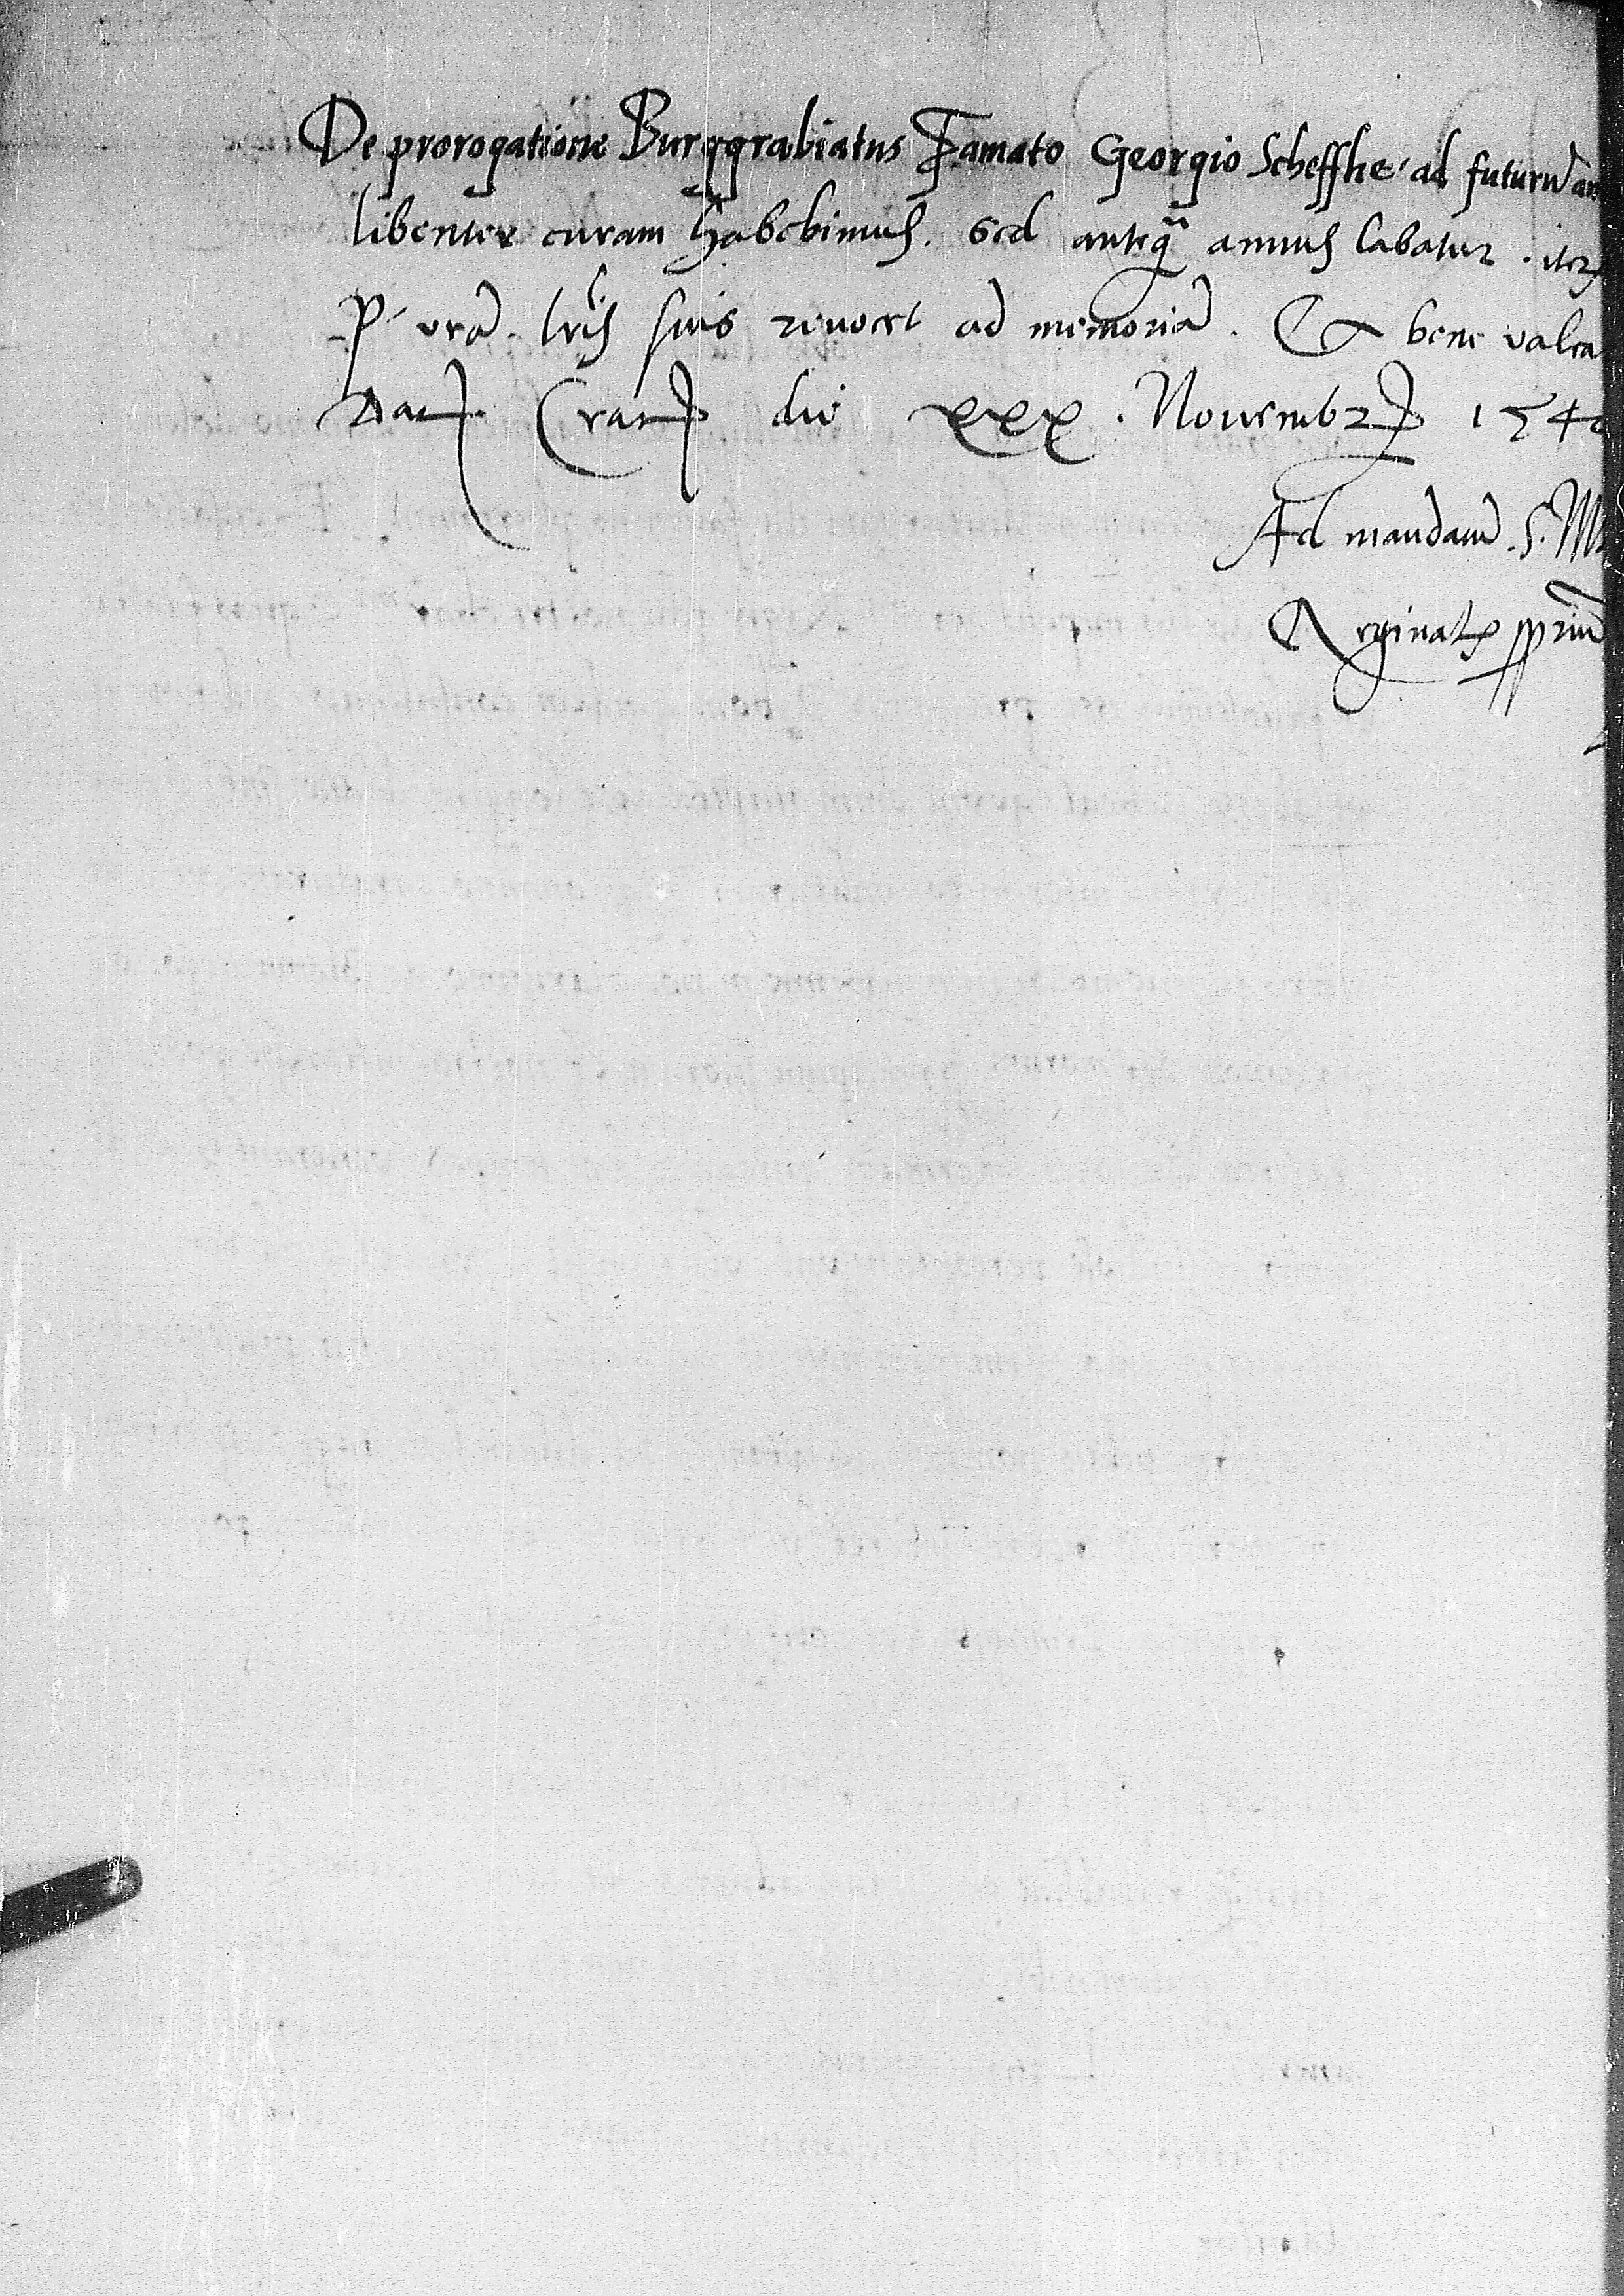 De prorogatione Burggrabiatus Famato Georgio Scheffhe ad futurū an
libenter curam habebimus. Sed anteq̄ annus labatur. iterȝ
P. vrā. lris suis reuocet ad memoriā. Et bene valea
Dat Crac die XXX. Nouembr 154
Ad mandatū. S. M
Reginalȝ ppriū